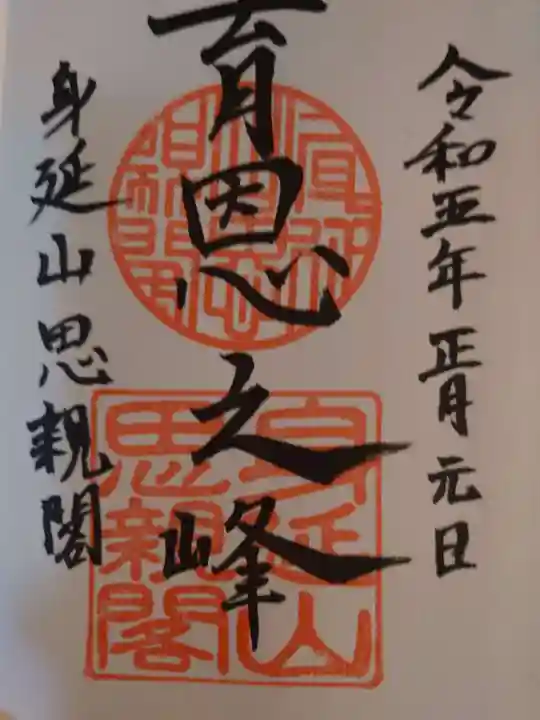 令和五年正月元日
育恩之峰
身延山思親閣
身延山
思親閣